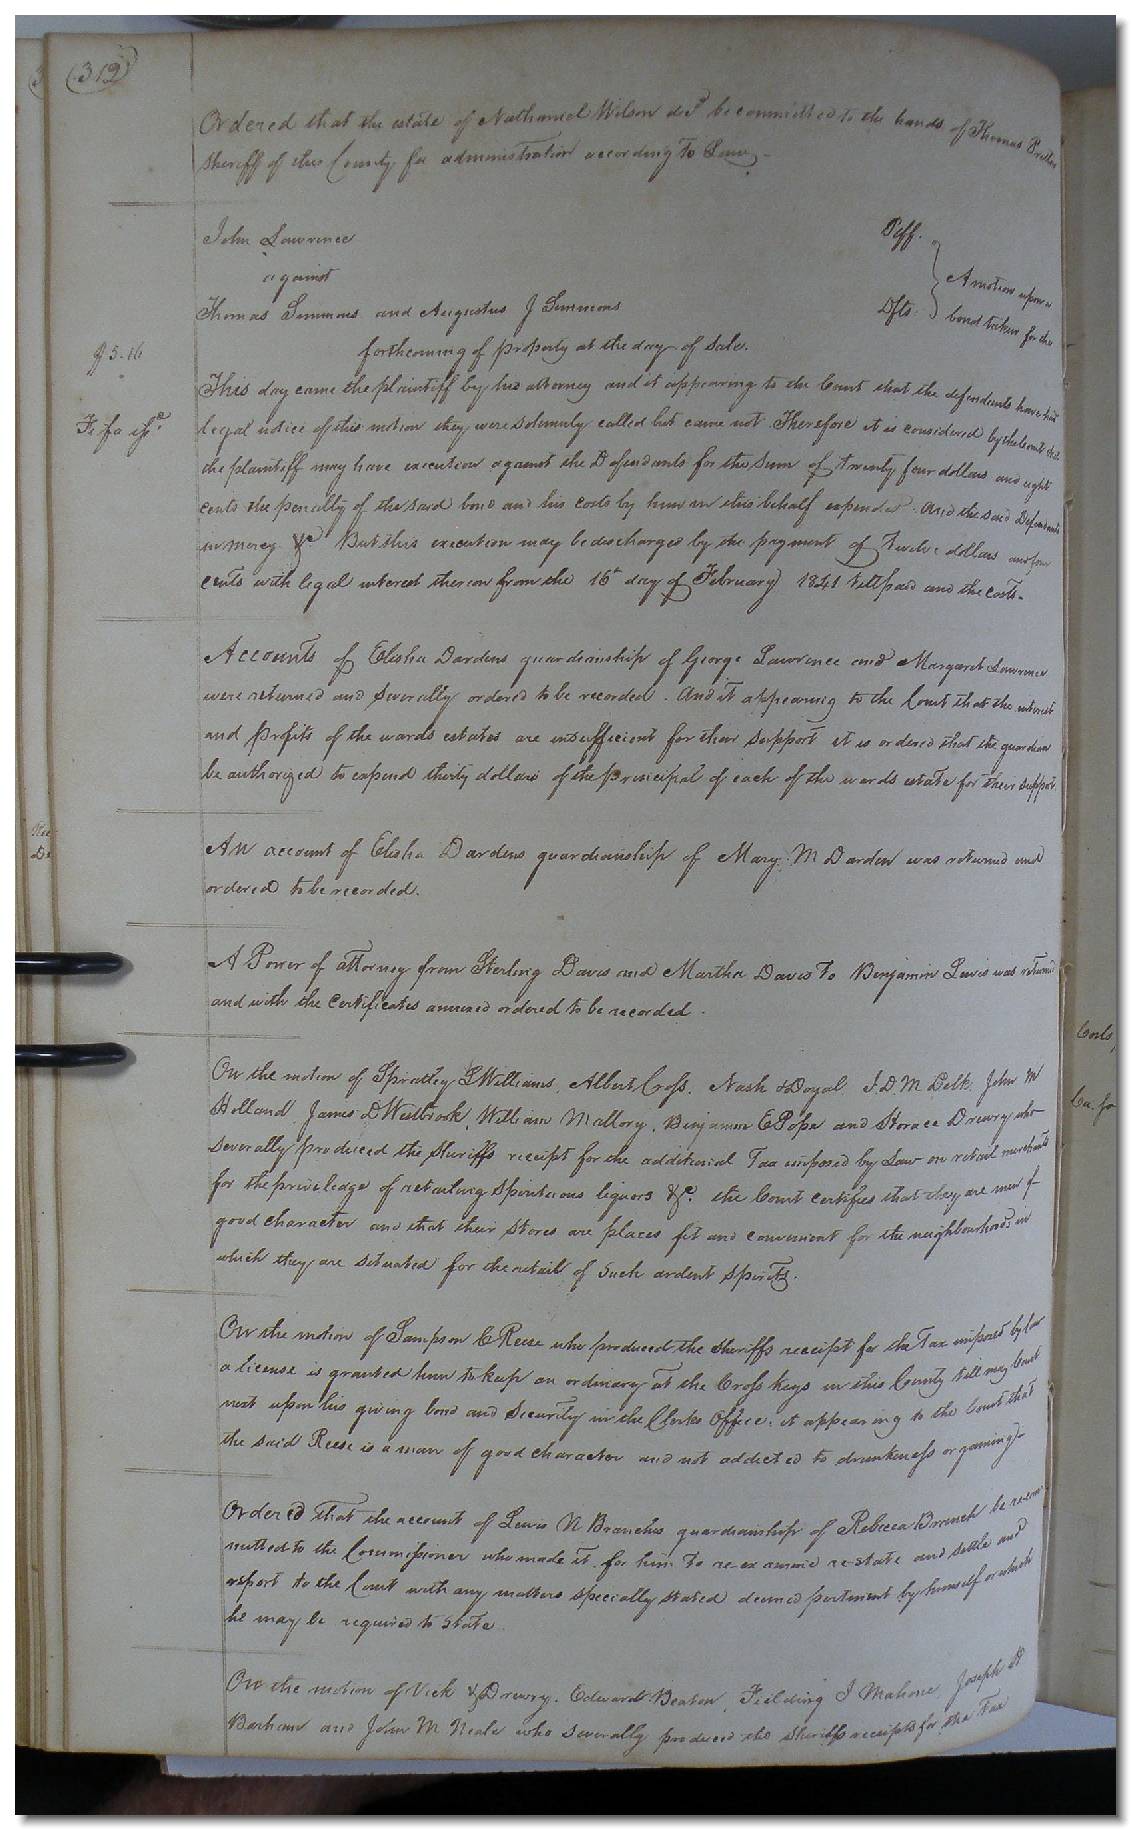 (312)
Ordered that the estate of Nathaniel Wilson decd be committed to the hands of Thomas Pretlow
sheriff of this County for administration according to Law.
John Lawrence Plff.
against
A motion upon a
Thomas Simmons and Augustus J Simmons Dfts. bond taken for the
forthcoming of property at the day of sale.
$5.16
This day came the plaintiff by his attorney and it appearing to the Court that the defendants have had
Fi fa issd.
legal notice of this motion they were solemnly called but came not Therefore it is considered by the Court that
the plaintiff may have execution against the Defendants for the sum of twenty four dollars and eight
cents the penalty of the said bond and his costs by him in this behalf expended. And the said Defendants
in mercy &c But this execution may be discharged by the payment of Twelve dollars and four
cents with legal interest thereon from the 16t day of February 1841 till paid and the costs.
Accounts of Elisha Dardens guardianship of George Lawrence and Margaret Lawrence
were returned and severally ordered to be recorded. And it appearing to the Court that the interest
and profits of the wards estates are insufficient for their support it is ordered that the guardian
be authorized to expend thirty dollars of the principal of each of the wards estate for their support.
An account of Elisha Dardens guardianship of Mary M Darden was returned and
ordered to be recorded.
A Power of attorney from Sterling Davis and Martha Davis to Benjamin Lewis was returned
and with the certificates annexed ordered to be recorded.
On the motion of Spratley & Williams, Albert Cross, Nash & Doyal, J. D. M. Delk, John M
Holland James D Westbrook, William Mallory, Benjamin E Pope and Horace Drewry who
severally produced the sheriffs receipt for the additional Tax imposed by Law on retail merchants
for the priviledge of retailing spirituous liquors &c. the Court certifies that they are men of
good character and that their stores are places fit and convenient for the neighbourhoods in
which they are situated for the retail of such ardent spirits.
On the motion of Sampson C Reese who produced the sheriffs receipt for the Tax imposed by law
a license is granted him to keep an ordinary at the Cross Keys in this County till may Court
next upon his giving bond and security in the Clerks Office, it appearing to the Court that
the said Reese is a man of good character and not addicted to drunkeness or gaming.
Ordered that the account of Lewis N Branchs guardianship of Rebecca Branch be recom
mitted to the Commissioner who made it for him to re-examine re-state and settle and
report to the Court with any matters specially stated deemed pertinent by himself or which
he may be required to state.
On the motion of Vick & Drewry, Edward Beaton, Fielding J Mahone, Joseph H
Barham and John M Neale who severally produced the sheriffs receipts for the Tax
Costs,
Ca. fa